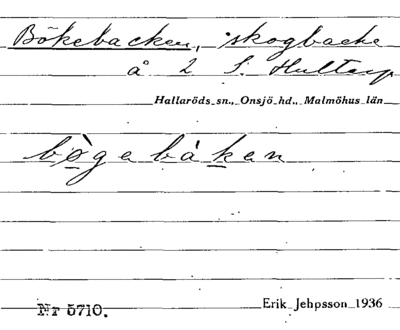 Bökebacken, skogbacke
å 2 S. Hultarp
Hallaröds sn., Onsjö hd., Malmöhus län
bø̀gabàkan
Nr 5710. Erik Jehpsson 1936